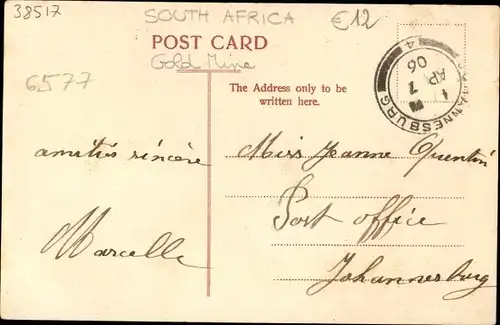 38517
SOUTH AFRICA
€12
POST CARD
Gold Mine
6577
The Address only to be
written here.
JOHANNESBURG
4
AP 7
06
amitiés sincère
Marcelle
Miss Jeanne Quentin
Post office
Johannesburg